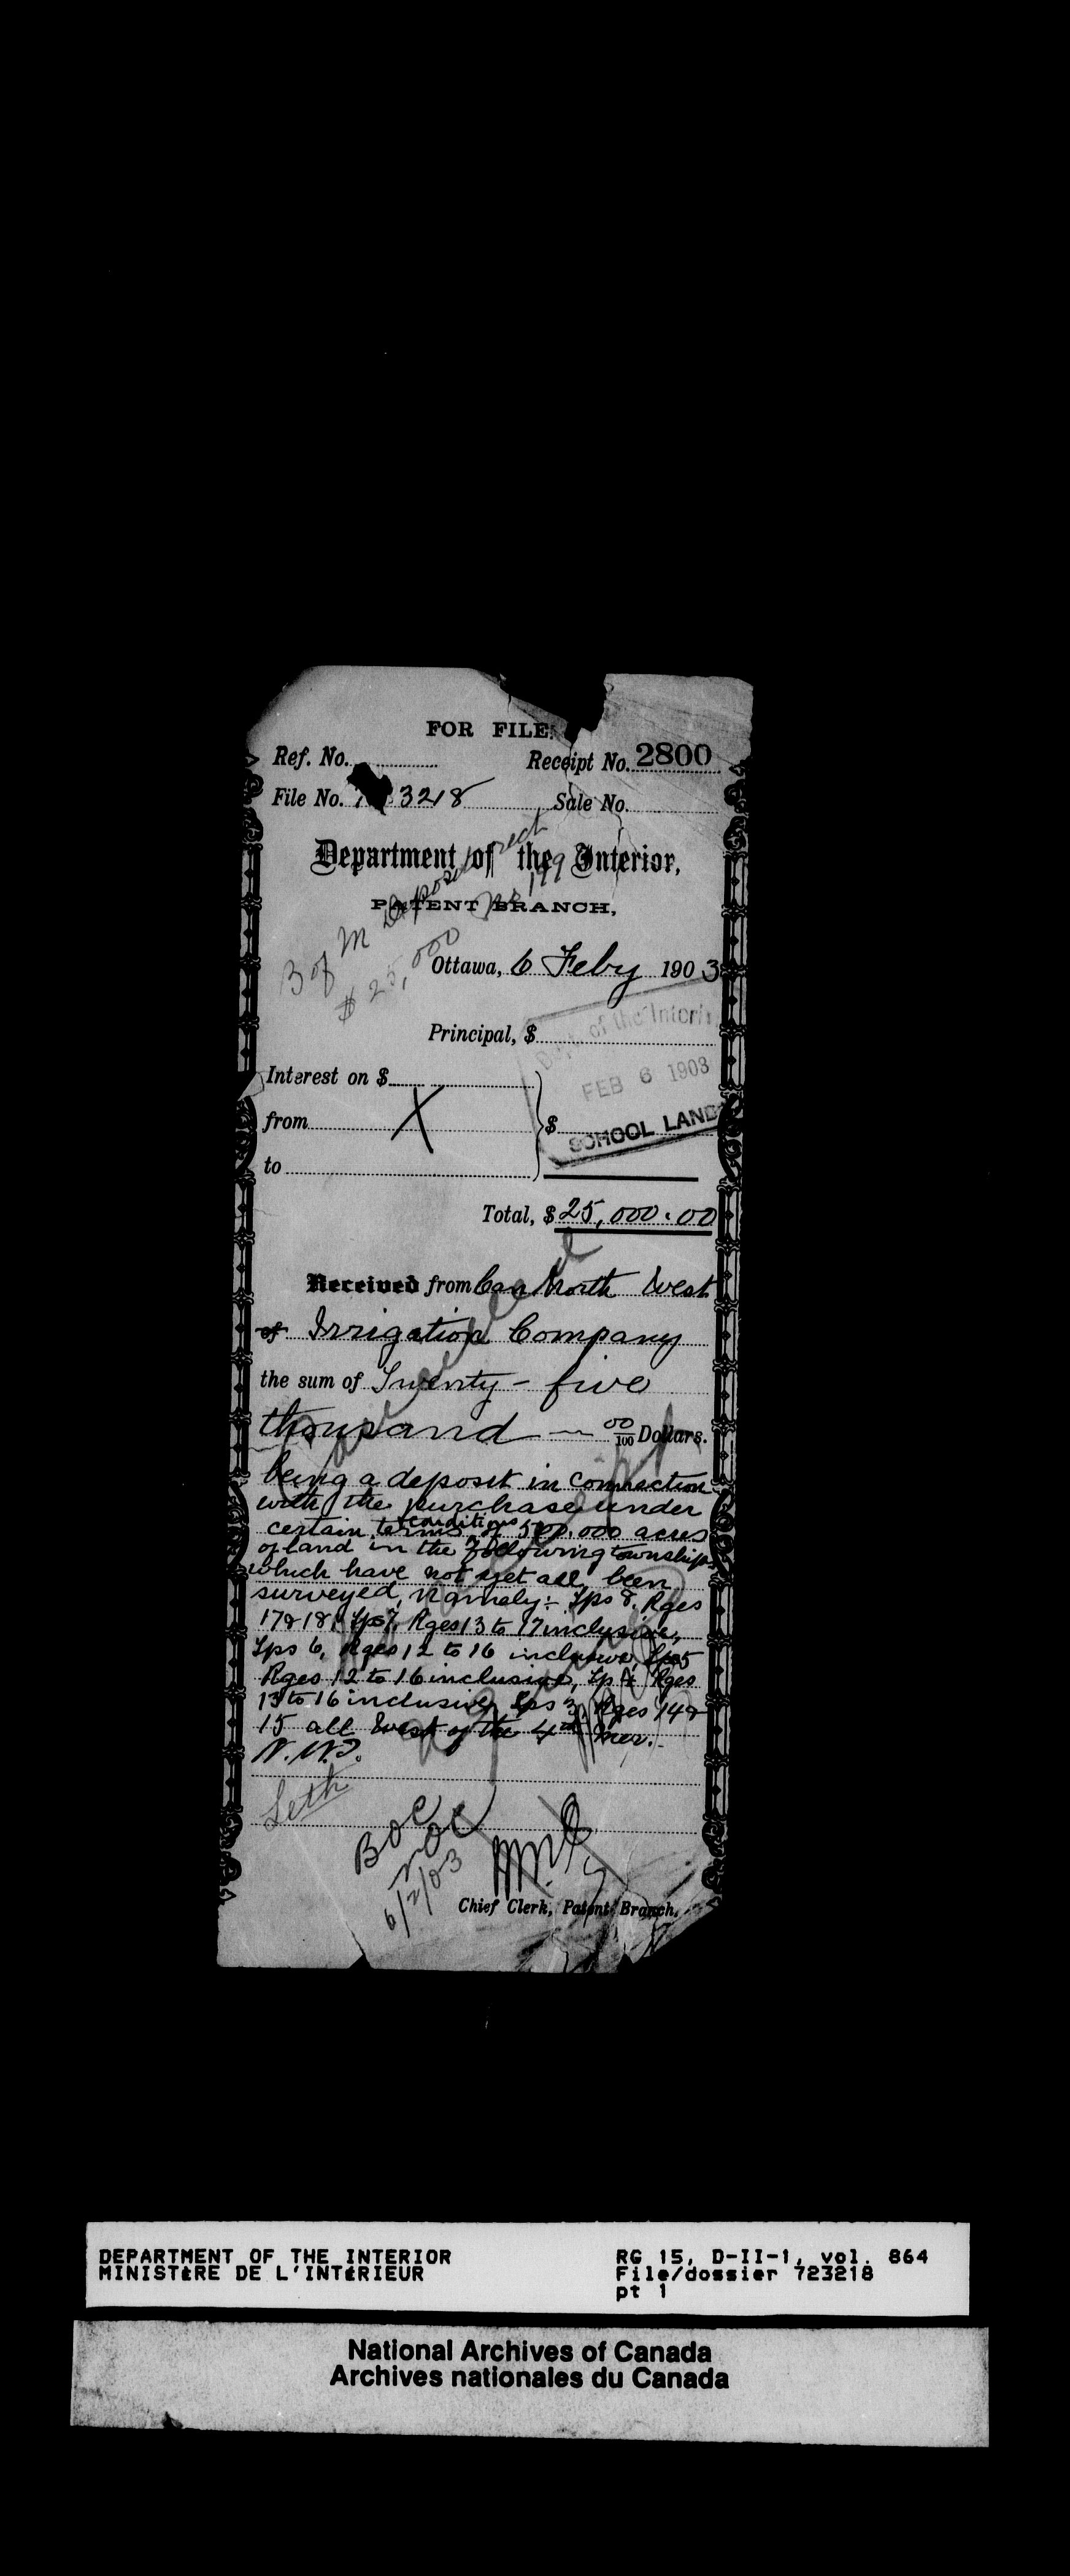 FOR FILE.
Ref. No. Receipt No. 2800
File No. 3218 Sale No.
Department of the Interior,
PATENT BRANCH,
B of M Deposit rect
$25,000
Ottawa, 6 Feby 1903
Principal, $
Dept. of the Interior
FEB 6 1903
SCHOOL LANDS
Interest on $
from X $
to
Total, $ 25,000.00
Received from Can North West
of Irrigation Company
the sum of Twenty-five
thousand 00/100 Dollars.
being a deposit in connection
with the purchase under
certain terms & conditions of 500,000 acres
of land in the following townships
which have not yet all been
surveyed, namely:- Tps 8. Rges
17 & 18, Tps 7, Rges 13 to 17 inclusive,
Tps 6, Rges 12 to 16 inclusive, Tps 5
Rges 12 to 16 inclusive, Tp 4 Rges
13 to 16 inclusive, Tps 3, Rges 14 &
15 all West of the 4th Mer.
N.W.T.
Cancelled
Leth
6/2/03
Chief Clerk, Patent Branch.
DEPARTMENT OF THE INTERIOR
MINISTÈRE DE L'INTÉRIEUR
RG 15, D-II-1, vol. 864
File/dossier 723218
pt 1
National Archives of Canada
Archives nationales du Canada